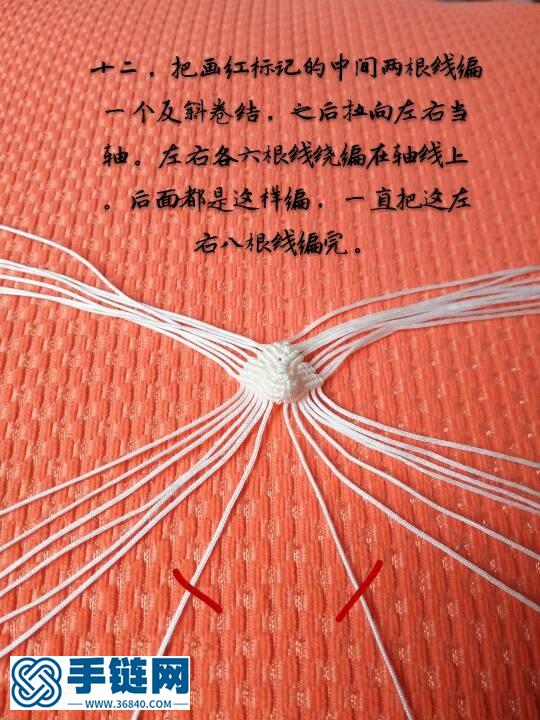 十二，把画红标记的中间两根线编
一个反斜卷结，之后扯向左右当
轴。左右各六根线绕编在轴线上
。后面都是这样编，一直把这左
右八根线编完。
手链网
WWW.36840.COM